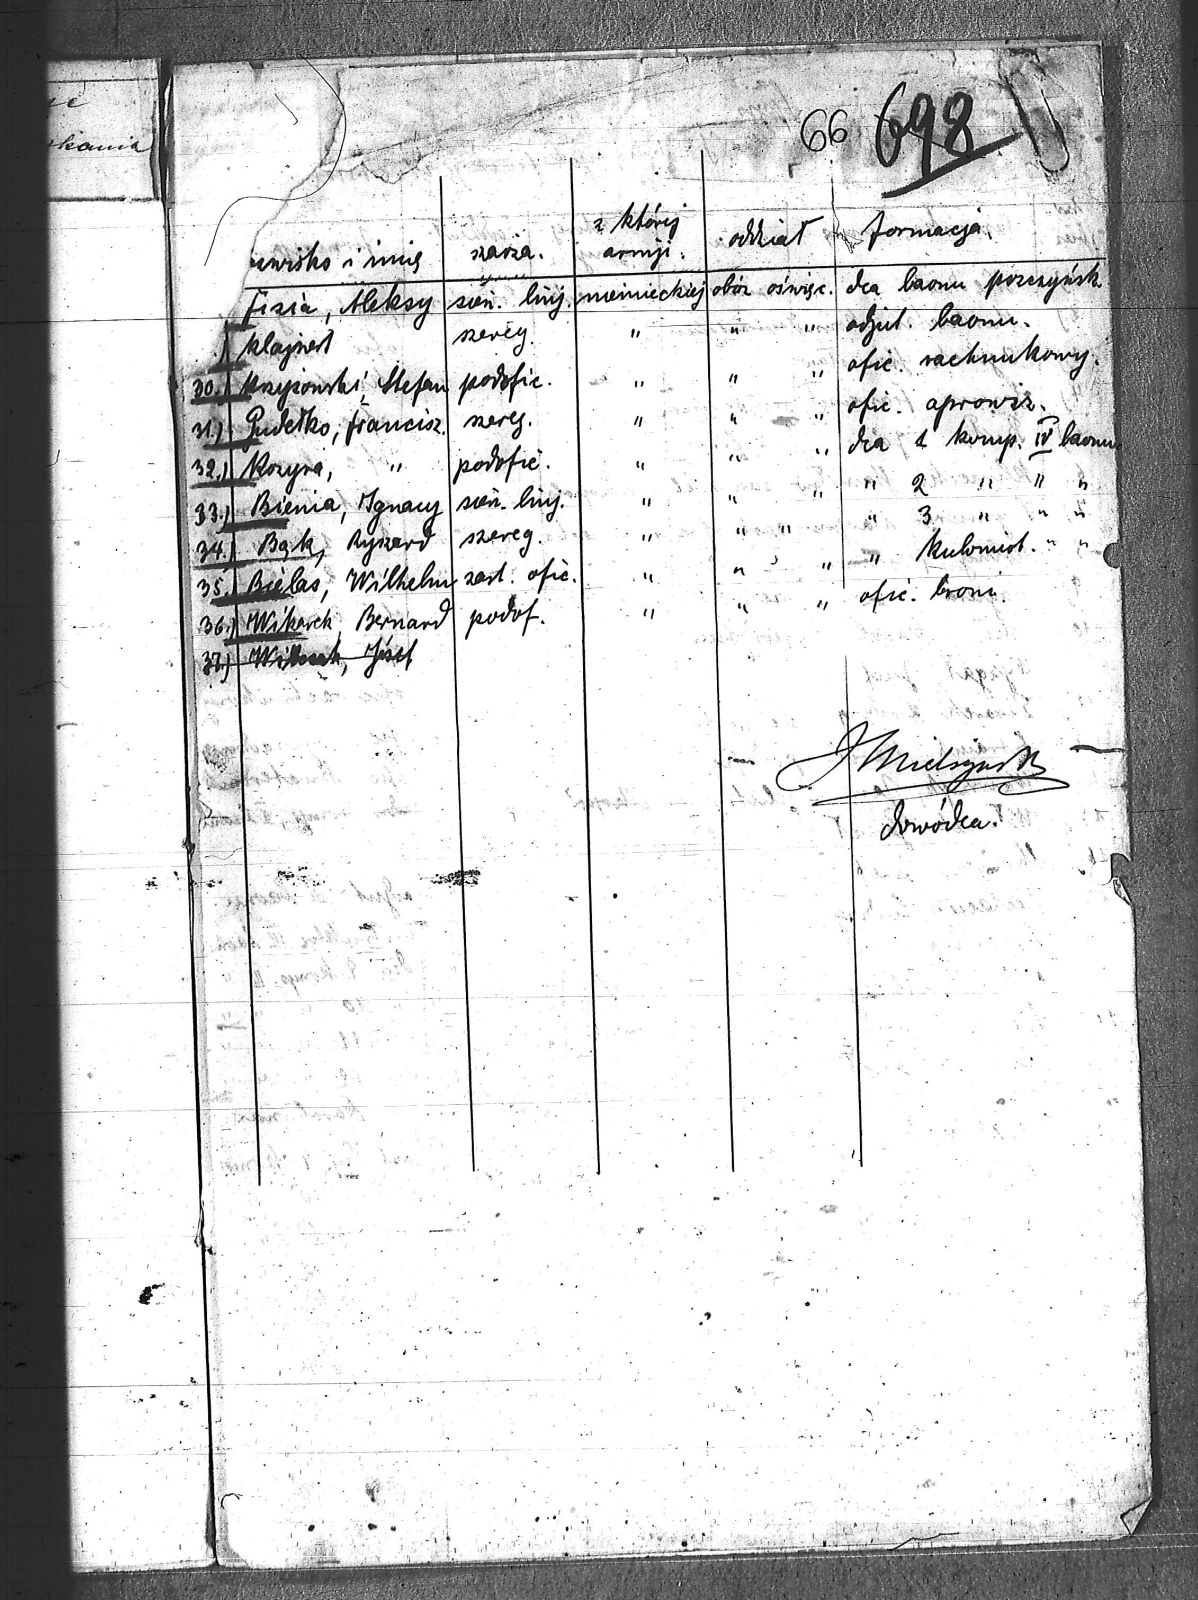 66 698
kania
z której
wisko i imię szarża. armji. oddział formacja.
Fizia, Aleksy sierż. linj. niemieckiej obóz oświęc. dca baonu pszczyńsk.
) Klajnert szereg. " " " odjut. baonu.
30.) Krzyżowski, Stefan podofic. " " " ofic. rachunkowy.
31.) Pudełko, Francisz. szereg. " " " ofic. aprowiz.
32.) Kozyra, " podofic. " " " dca 1 komp. IV baonu
33.) Bienia, Ignacy sierż. linj. " " " " 2 " " "
34.) Bąk, Ryszard szereg. " " " " 3 " " "
35. Bielas, Wilhelm zast. ofic. " " " " kulomiot. " "
36.) Wikarek, Bernard podof. " " " ofic. broni.
37.) Józef
Mielżyński
dowódca.